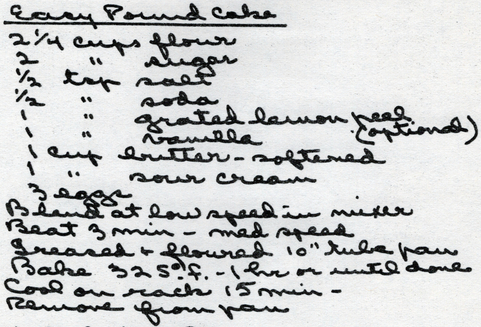 Easy Pound Cake
2 1/4 cups flour
2 " sugar
1/2 tsp salt
1/2 " soda
1 " grated lemon peel
1 " vanilla (optional)
1 cup butter - softened
1 " sour cream
3 eggs
Blend at low speed in mixer
Beat 3 min - med speed
Greased + floured 10" tube pan
Bake 325° f. - 1 hr or until done
Cool on rack 15 min -
Remove from pan